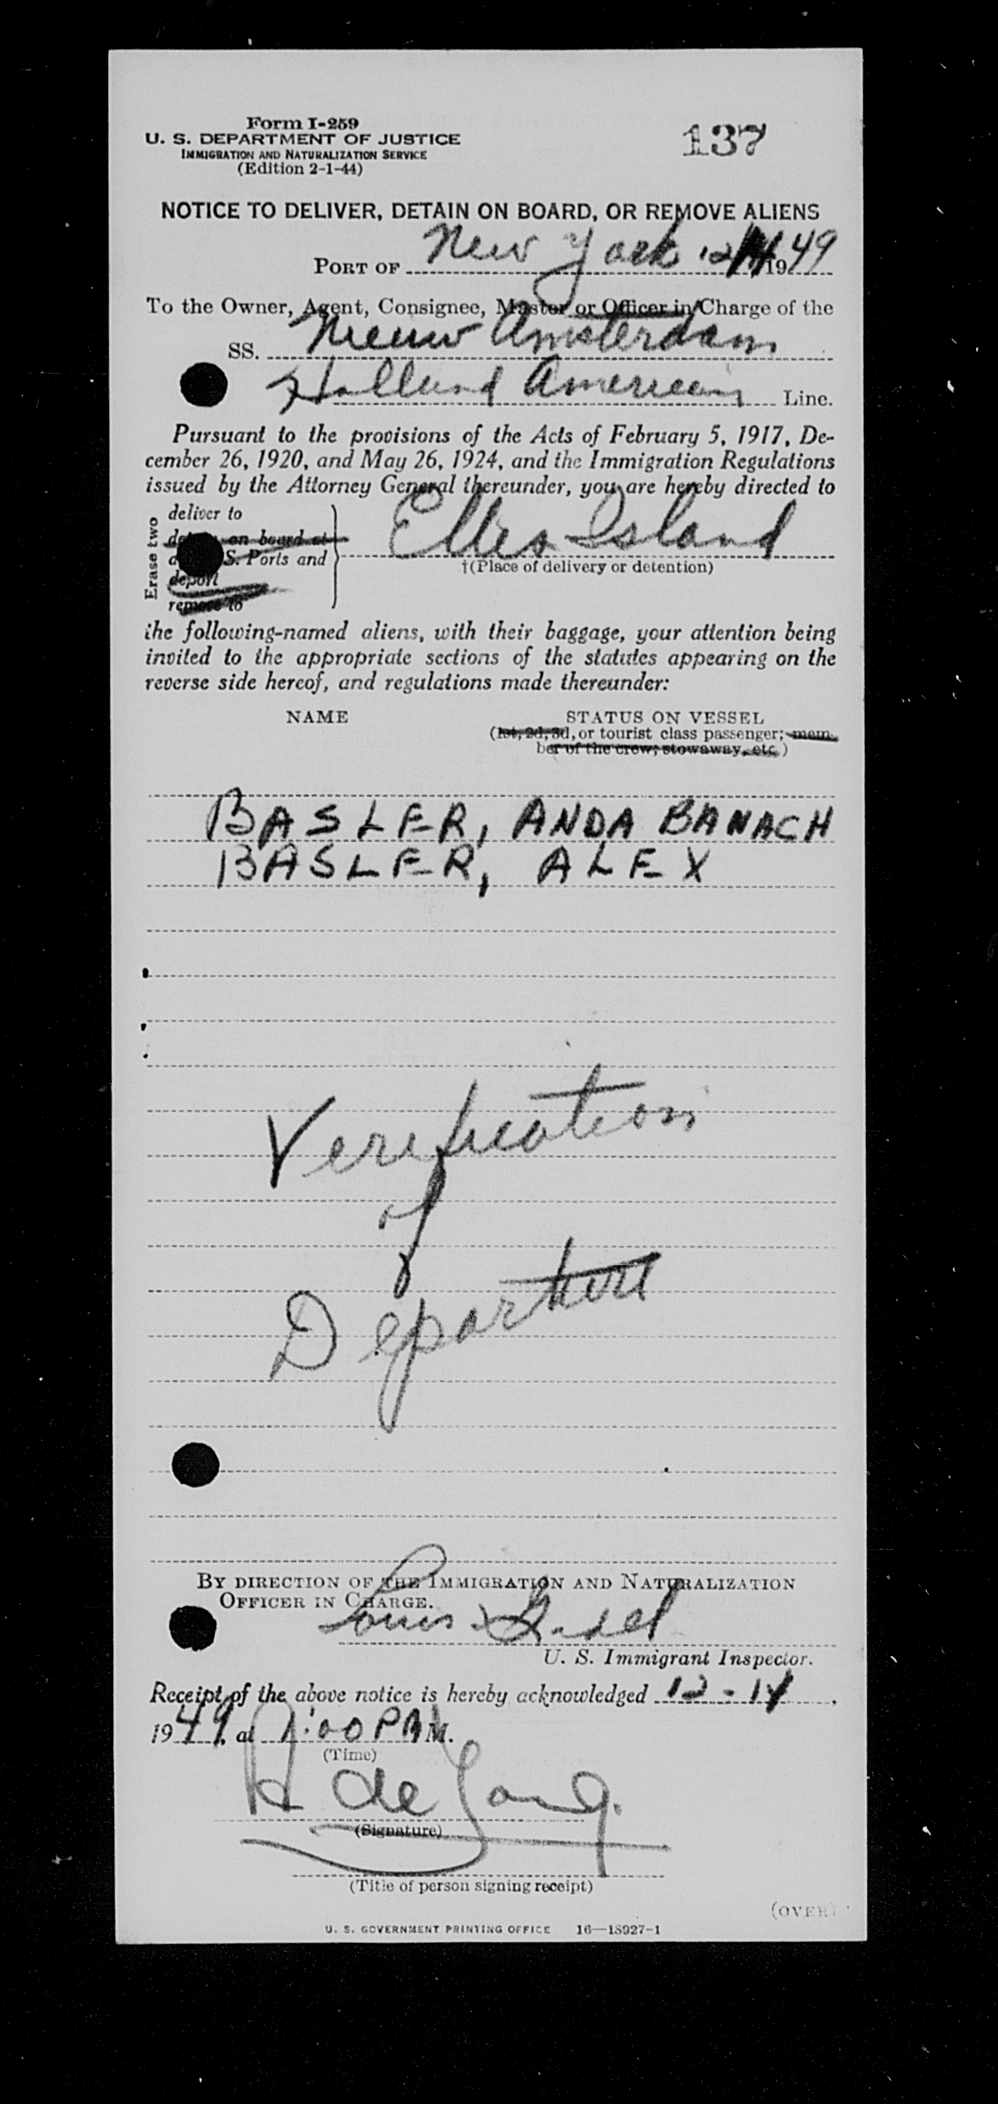 Form I-259
U. S. DEPARTMENT OF JUSTICE
IMMIGRATION AND NATURALIZATION SERVICE
(Edition 2-1-44)
137
NOTICE TO DELIVER, DETAIN ON BOARD, OR REMOVE ALIENS
PORT OF New York 12/14 1949
To the Owner, Agent, Consignee, Master or Officer in Charge of the
SS. Nieuw Amsterdam
Holland American Line.
Pursuant to the provisions of the Acts of February 5, 1917, De-
cember 26, 1920, and May 26, 1924, and the Immigration Regulations
issued by the Attorney General thereunder, you are hereby directed to
Erase two
deliver to
on board at
S. Ports and
deport
remove to
Ellis Island
†(Place of delivery or detention)
the following-named aliens, with their baggage, your attention being
invited to the appropriate sections of the statutes appearing on the
reverse side hereof, and regulations made thereunder:
NAME
STATUS ON VESSEL
(1st, 2d, 3d, or tourist class passenger; mem-
ber of the crew; stowaway, etc.)
BASLER, ANDA BANACH
BASLER, ALEX
Verification
of
Departure
BY DIRECTION OF THE IMMIGRATION AND NATURALIZATION
OFFICER IN CHARGE.
Louis
U. S. Immigrant Inspector.
Receipt of the above notice is hereby acknowledged 12-14,
1949, at 1:00 P M.
(Time)
H de Jong.
(Signature)
(Title of person signing receipt)
(OVER)
U. S. GOVERNMENT PRINTING OFFICE 16—18927-1